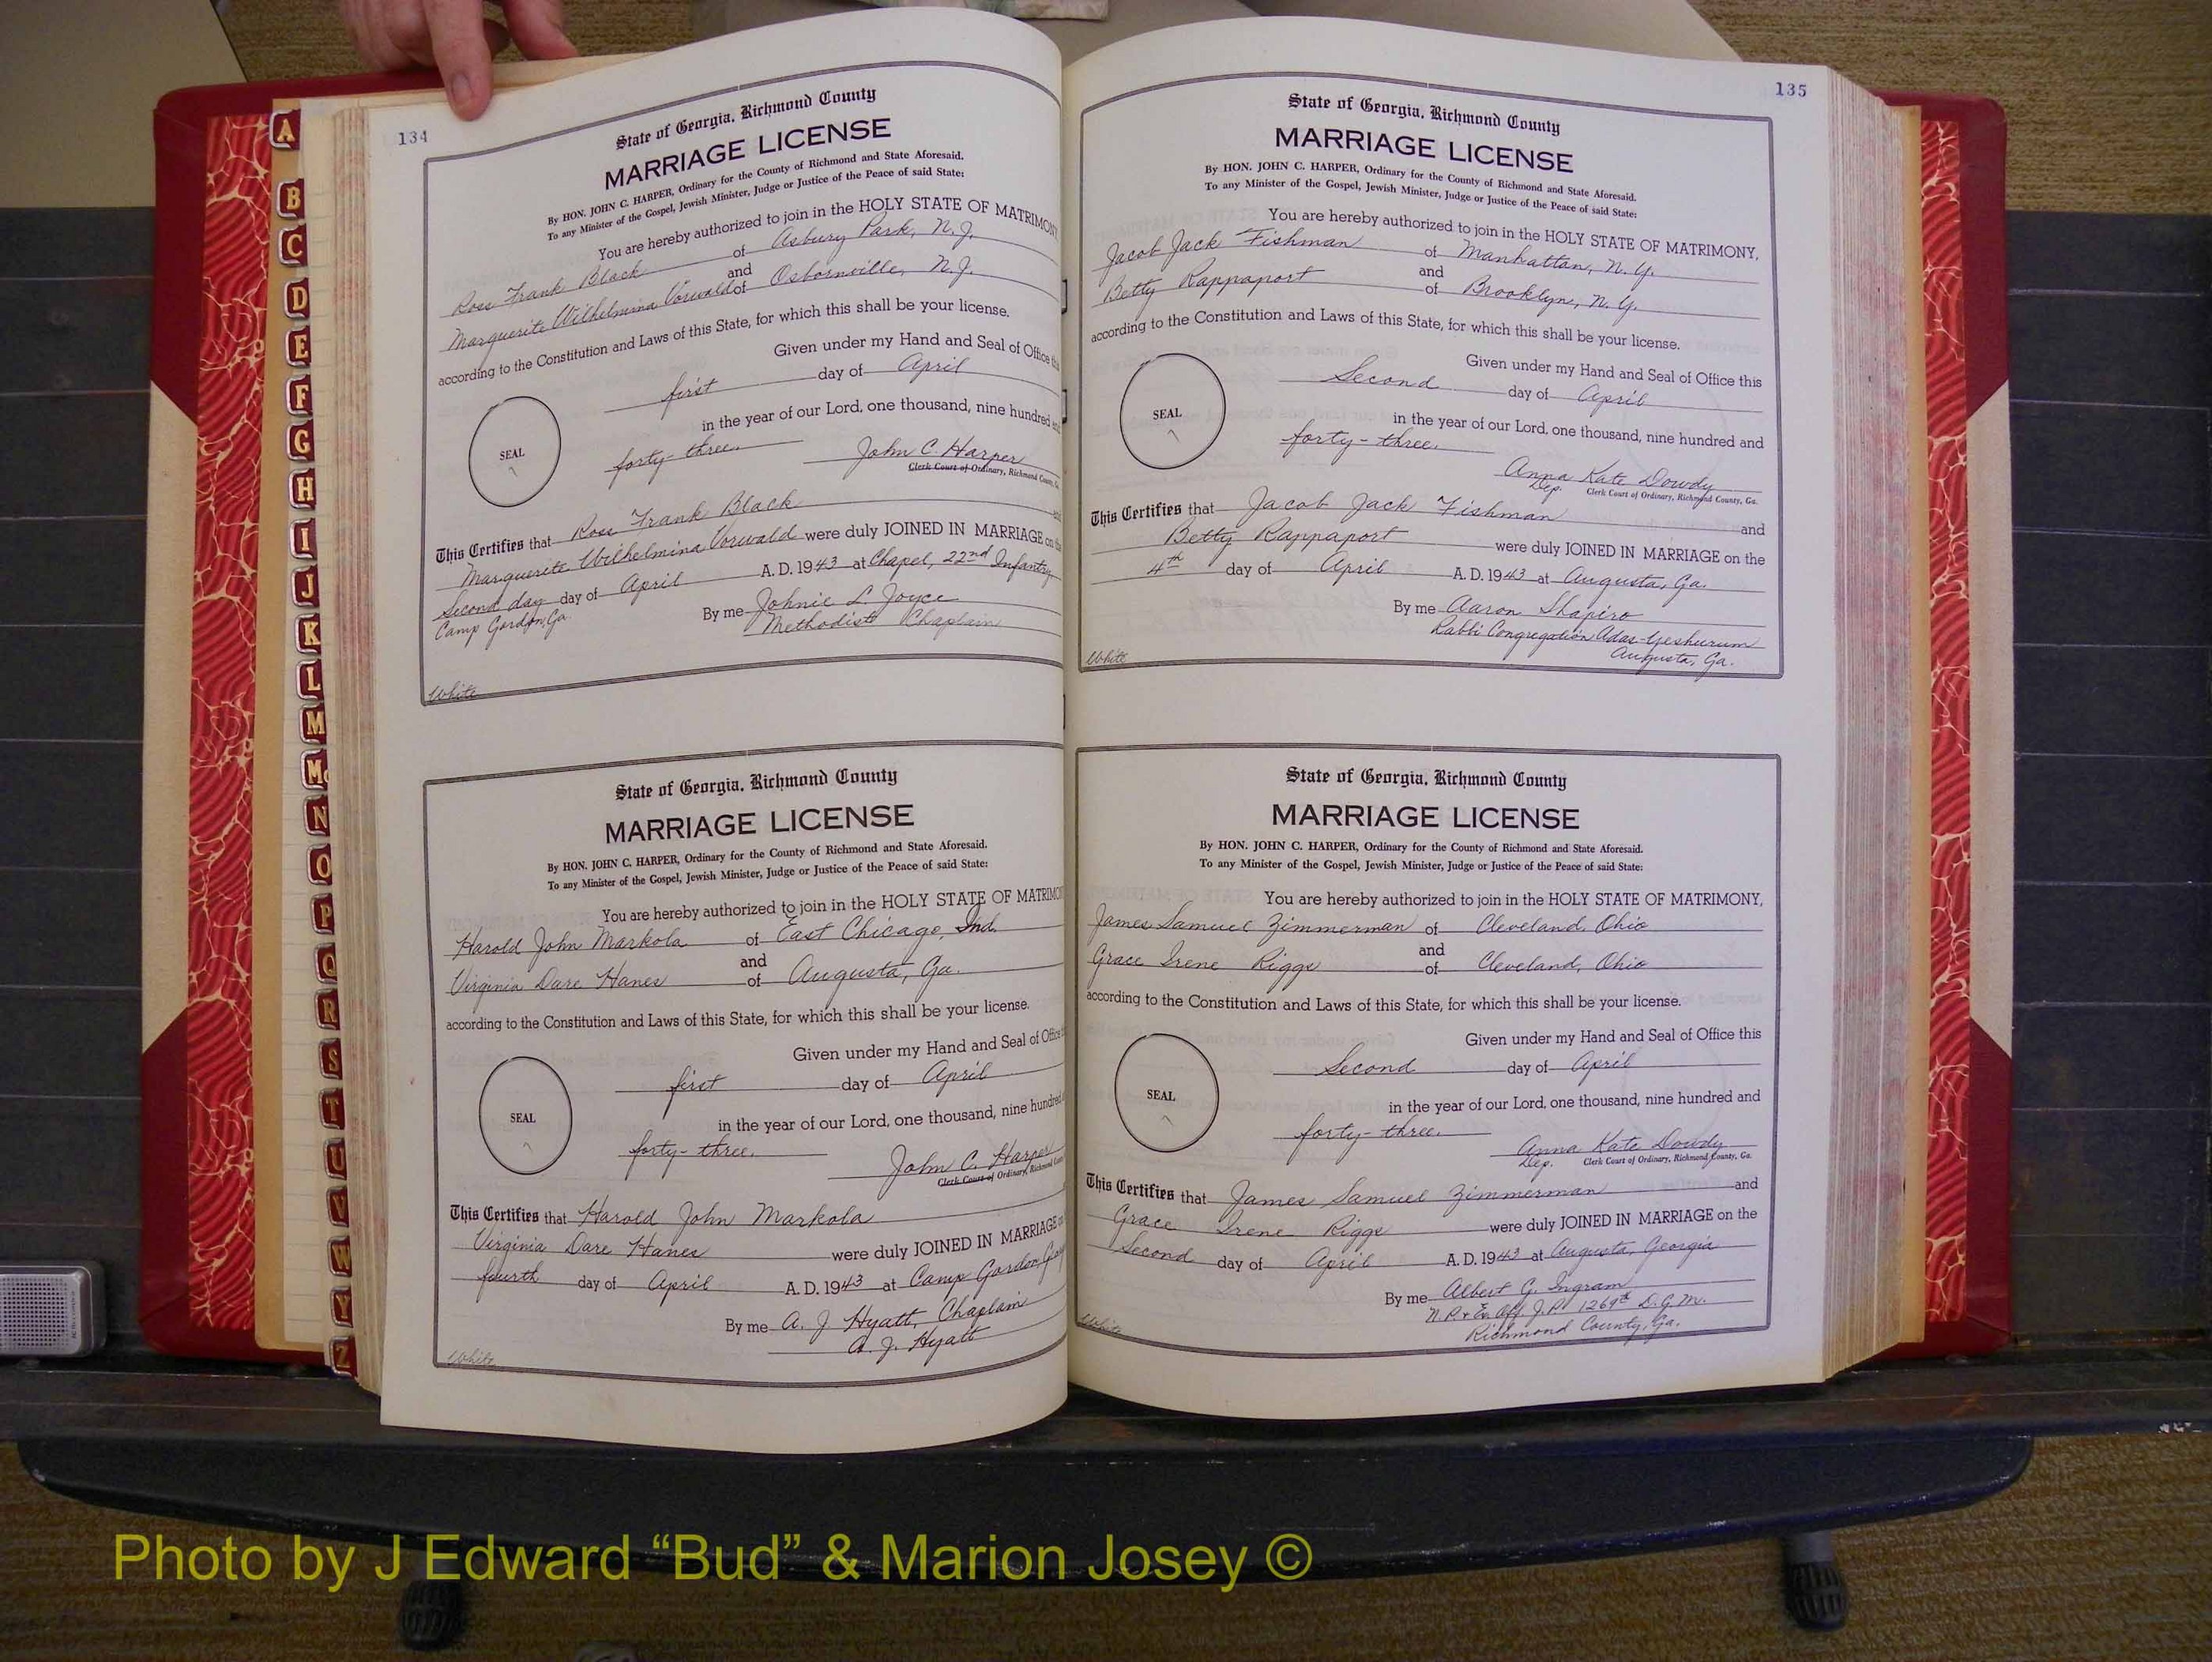 134
State of Georgia, Richmond County
MARRIAGE LICENSE
By HON. JOHN C. HARPER, Ordinary for the County of Richmond and State Aforesaid.
To any Minister of the Gospel, Jewish Minister, Judge or Justice of the Peace of said State:
You are hereby authorized to join in the HOLY STATE OF MATRIMONY
Ross Frank Black of Asbury Park, N.J.
and
Marguerite Wilhelmina Vorwald of Osbornville, N.J.
according to the Constitution and Laws of this State, for which this shall be your license.
Given under my Hand and Seal of Office this
first day of April
in the year of our Lord, one thousand, nine hundred and
SEAL
forty-three.
John C. Harper
Clerk Court of Ordinary, Richmond County, Ga.
This Certifies that Ross Frank Black and
Marguerite Wilhelmina Vorwald were duly JOINED IN MARRIAGE on the
Second day day of April A. D. 1943 at Chapel, 22nd Infantry,
Camp Gordon, Ga.
By me Johnie L. Joyce
Methodist Chaplain
White
State of Georgia, Richmond County
MARRIAGE LICENSE
By HON. JOHN C. HARPER, Ordinary for the County of Richmond and State Aforesaid.
To any Minister of the Gospel, Jewish Minister, Judge or Justice of the Peace of said State:
You are hereby authorized to join in the HOLY STATE OF MATRIMO
Harold John Markola of East Chicago, Ind.
and
Virginia Dare Hanes of Augusta, Ga.
according to the Constitution and Laws of this State, for which this shall be your license.
Given under my Hand and Seal of Office
first day of April
in the year of our Lord, one thousand, nine hundred
SEAL
forty-three.
John C. Harper
Clerk Court of Ordinary, Richmond
This Certifies that Harold John Markola
Virginia Dare Hanes were duly JOINED IN MARRIAGE
fourth day of April A. D. 1943 at Camp Gordon,
By me A. J Hyatt, Chaplain
A. J. Hyatt
White
135
State of Georgia, Richmond County
MARRIAGE LICENSE
By HON. JOHN C. HARPER, Ordinary for the County of Richmond and State Aforesaid.
To any Minister of the Gospel, Jewish Minister, Judge or Justice of the Peace of said State:
You are hereby authorized to join in the HOLY STATE OF MATRIMONY,
Jacob Jack Fishman of Manhattan, N.Y.
and
Betty Rappaport of Brooklyn, N.Y.
according to the Constitution and Laws of this State, for which this shall be your license.
Given under my Hand and Seal of Office this
Second day of April
in the year of our Lord, one thousand, nine hundred and
SEAL
forty-three.
Anna Kate Dowdy
Dep. Clerk Court of Ordinary, Richmond County, Ga.
This Certifies that Jacob Jack Fishman and
Betty Rappaport were duly JOINED IN MARRIAGE on the
4th day of April A. D. 1943 at Augusta, Ga.
By me Aaron Shapiro
Rabbi Congregation Adas-Yeshurum
Augusta, Ga.
White
State of Georgia, Richmond County
MARRIAGE LICENSE
By HON. JOHN C. HARPER, Ordinary for the County of Richmond and State Aforesaid.
To any Minister of the Gospel, Jewish Minister, Judge or Justice of the Peace of said State:
You are hereby authorized to join in the HOLY STATE OF MATRIMONY,
James Samuel Zimmerman of Cleveland, Ohio
and
Grace Irene Riggs of Cleveland, Ohio
according to the Constitution and Laws of this State, for which this shall be your license.
Given under my Hand and Seal of Office this
Second day of April
in the year of our Lord, one thousand, nine hundred and
SEAL
forty-three.
Anna Kate Dowdy
Dep. Clerk Court of Ordinary, Richmond County, Ga.
This Certifies that James Samuel Zimmerman and
Grace Irene Riggs were duly JOINED IN MARRIAGE on the
Second day of April A. D. 1943 at Augusta, Georgia
By me Albert G. Ingram
N.P. & Ex. Off. J.P. 1269th D.G.M.
Richmond County, Ga.
White
A
B
C
D
E
F
G
H
I
J
K
L
M
Mc
N
O
P
Q
R
S
T
U
V
W
Y
Z
Photo by J Edward “Bud” & Marion Josey ©